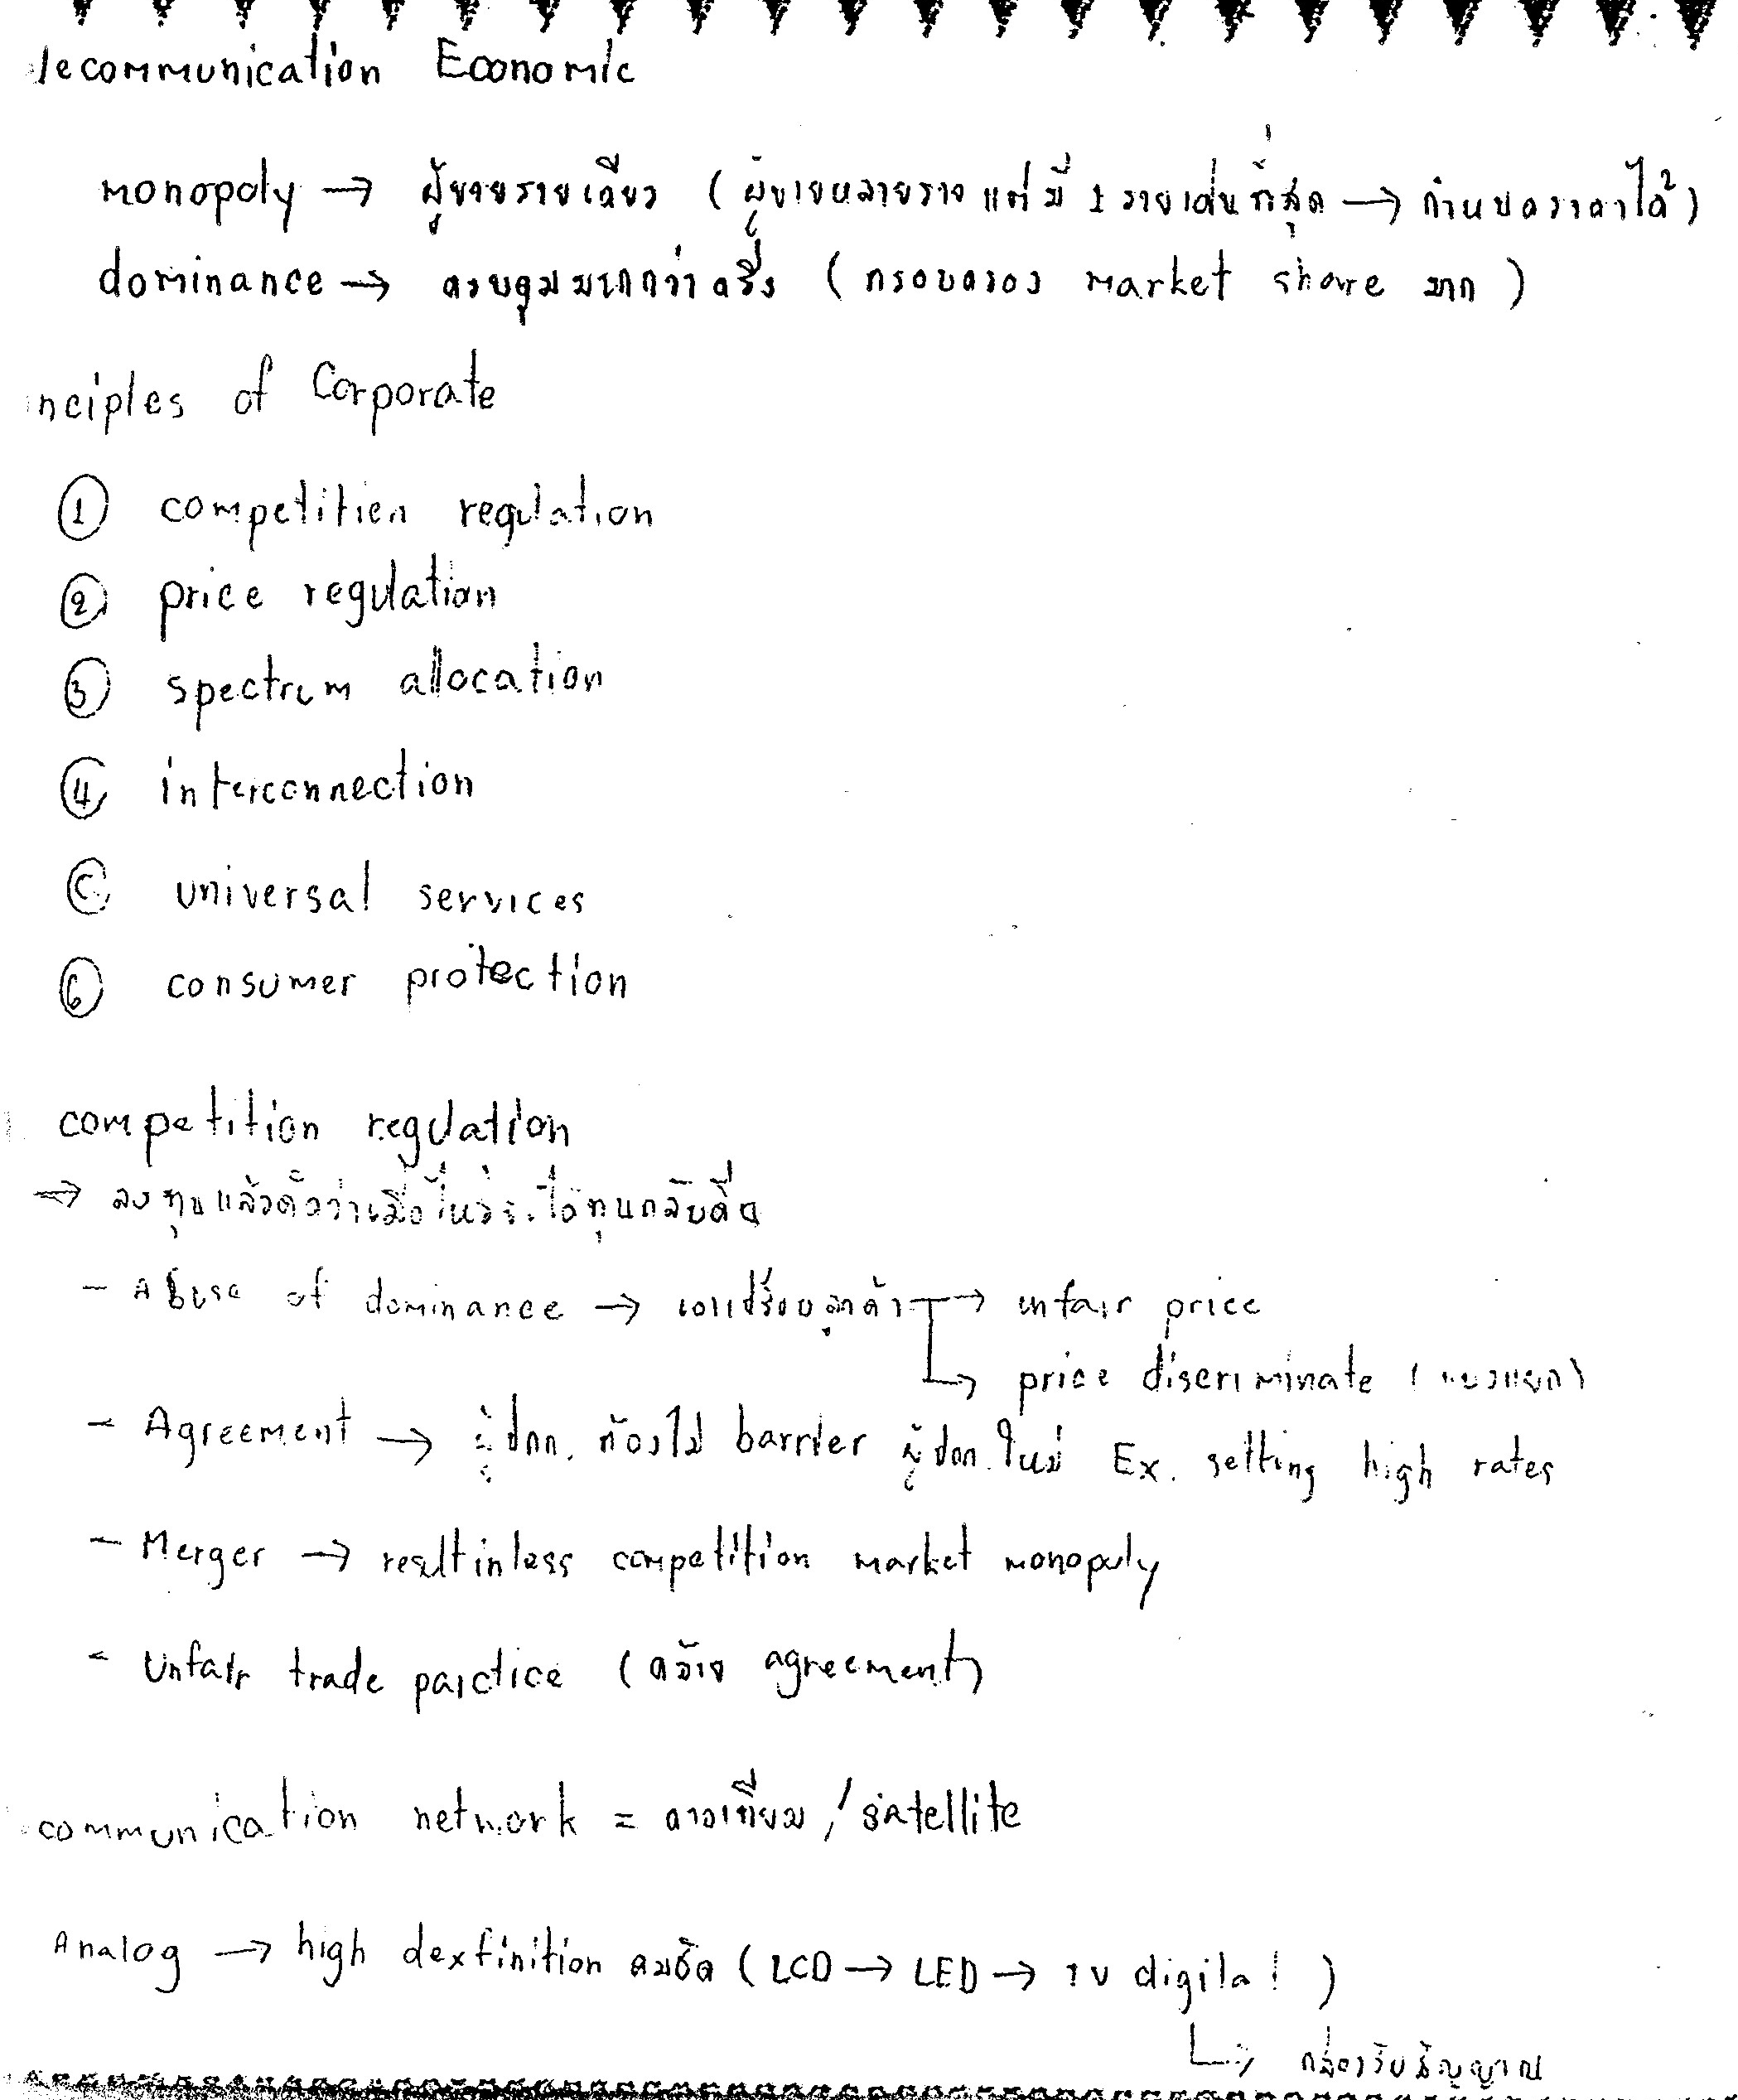 lecommunication Economic
monopoly → ผู้ขายรายเดียว (ผู้ขายหลายราย แต่มี 1 รายเด่นที่สุด → กำหนดราคาได้)
dominance → ควบคุมมากกว่าครึ่ง (ครอบครอง market share มาก)
nciples of Corporate
① competition regulation
② price regulation
③ spectrum allocation
④ interconnection
universal services
⑥ consumer protection
competition regulation
→ ลงทุนแล้วคิดว่าเมื่อไหร่จะได้ทุนกลับคืน
- Abuse of dominance → เอาเปรียบลูกค้า → unfair price
↳ price discriminate (แบ่งแยก)
- Agreement → ผู้ปกก. ต้องไม่ barrier ผู้ปกก. ใหม่ Ex. setting high rates
- Merger → result in less competition market monopoly
- Unfair trade parctice (คล้าย agreement)
communication network = ดาวเทียม / satellite
Analog → high dexfinition คมชัด (LCD → LED → TV digital)
↳ กล่องรับสัญญาณ